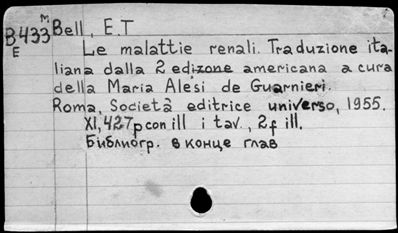 М.
В433
Е
Bell, E.T
Le malattie renali. Traduzione ita-
liana dalla 2 edizone americana a cura
della Maria Alesi de Guarnieri.
Roma, Società editrice universo, 1955.
XI, 427p con ill i tav., 2f ill.
Библиогр. в конце глав